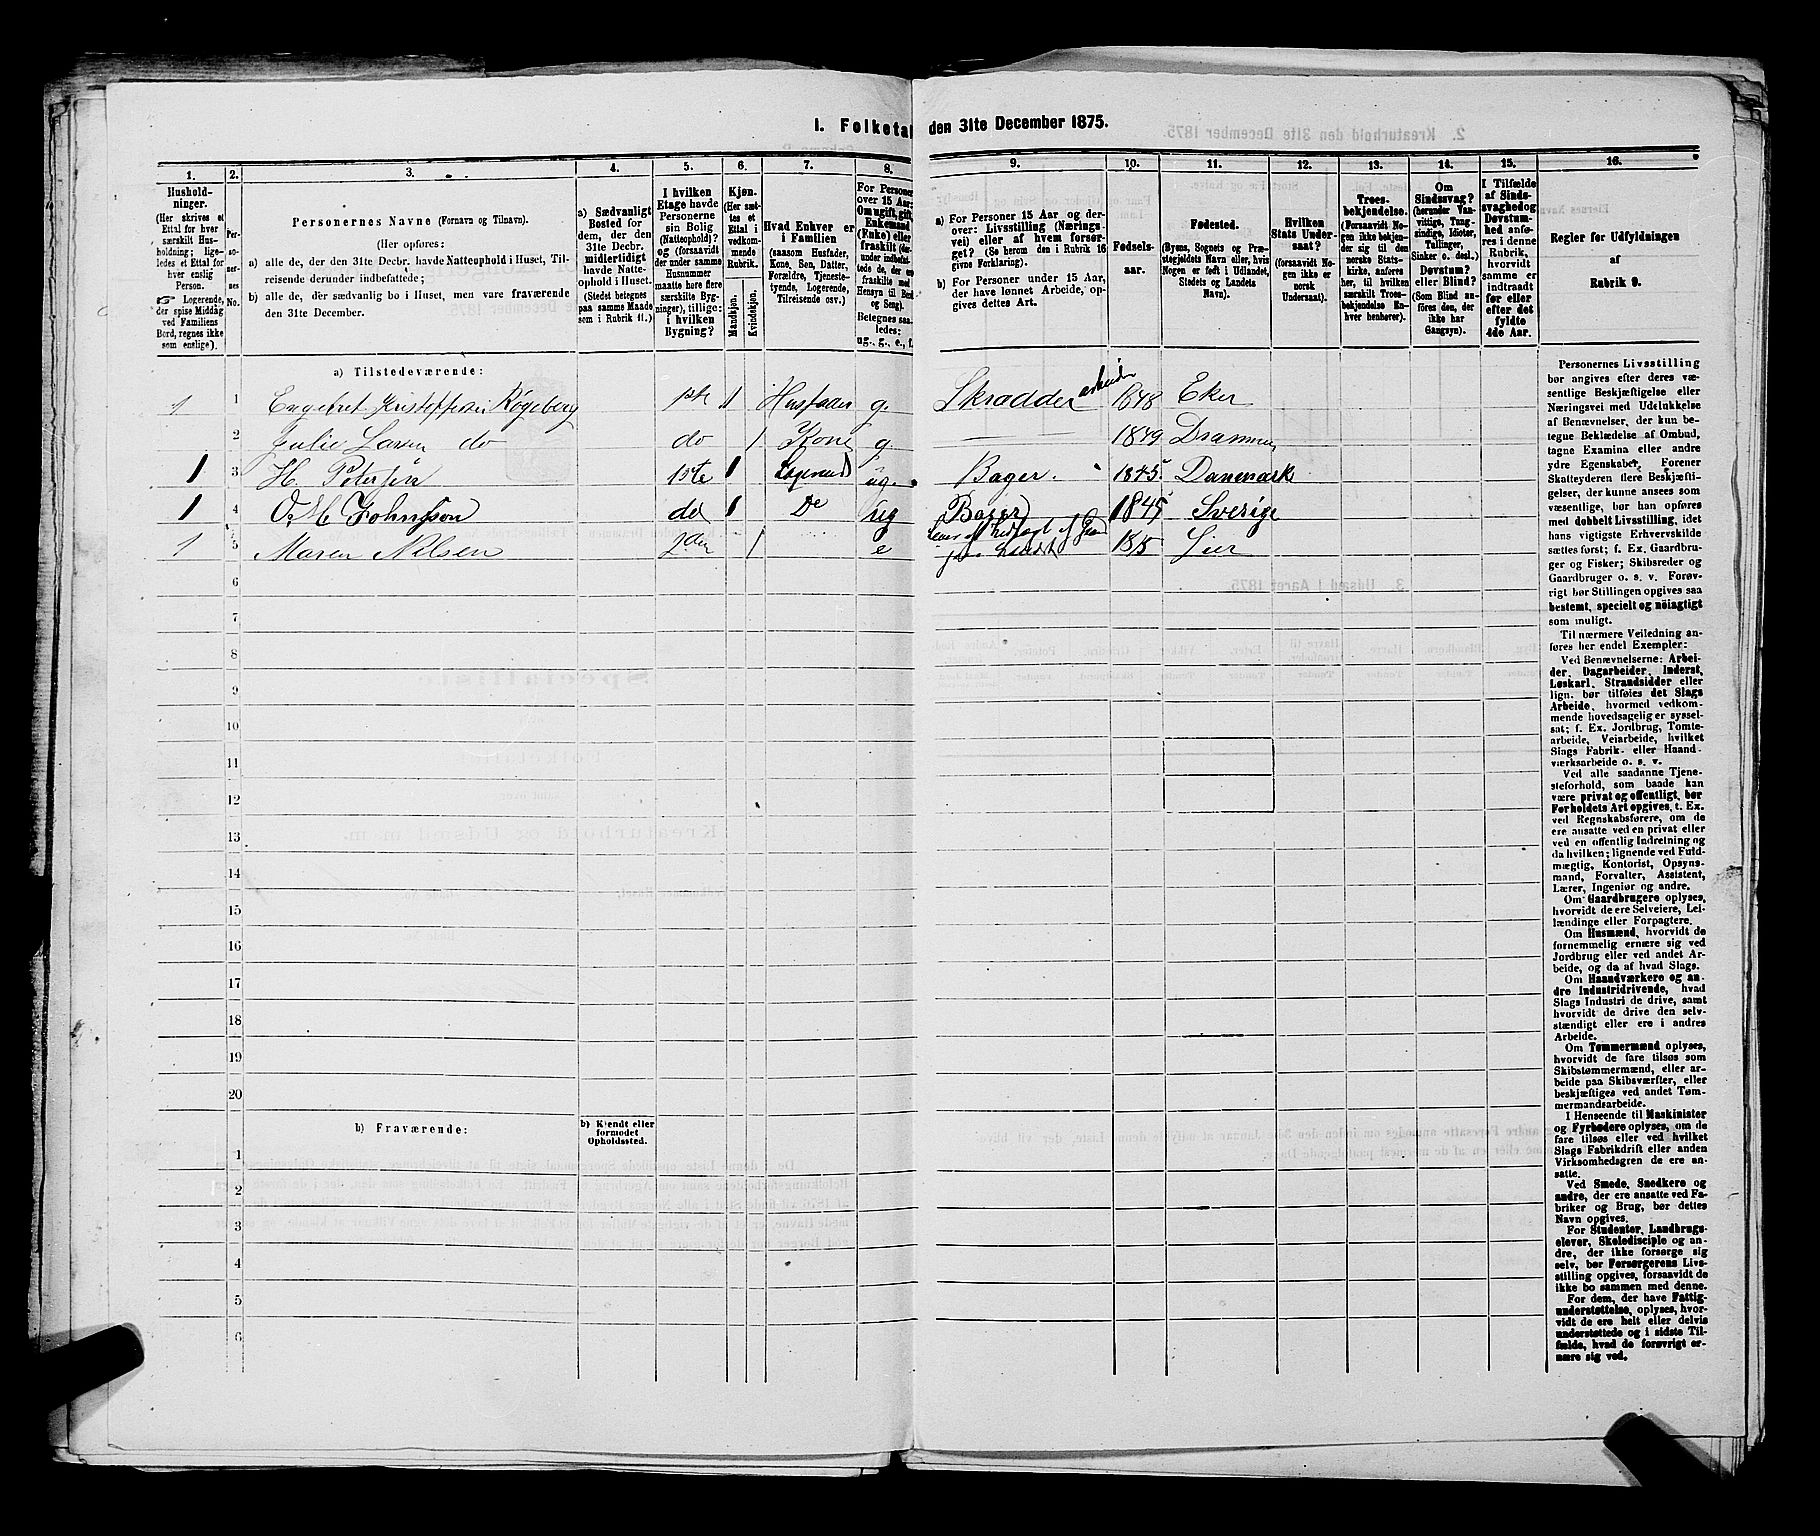 1. Folketal den 31te December 1875.
1.
2.
3.
4.
5.
6.
7.
8.
9.
10.
11.
12.
13.
14.
15.
16.
Hushold-
ninger.
(Her skrives et
Ettal for hver
særskilt Hus-
holdning; lige-
ledes et Ettal for
hver enslig
Person.
☞ Logerende,
der spise Middag
ved Familiens
Bord, regnes ikke
som enslige).
Per-
soner-
nes
No.
Personernes Navne (Fornavn og Tilnavn).
(Her opføres:
a) alle de, der den 31te Decbr. havde Natteophold i Huset, Til-
reisende derunder indbefattede;
b) alle de, der sædvanlig bo i Huset, men vare fraværende
den 31te December.
a) Sædvanligt
Bosted for
dem, der den
31te Decbr.
midlertidigt
havde Natte-
ophold i Huset.
(Stedet betegnes
paa samme Maade
som i Rubrik 11.)
I hvilken
Etage havde
Personerne
sin Bolig
(Natteophold)?
og (forsaavidt
der under samme
Husnummer
maatte høre flere
særskilte Byg-
ninger), tillige:
i hvilken
Bygning?
Kjøn.
(Her sæt-
tes et
Ettal i
vedkom-
mende
Rubrik.
Mandkjøn.
Kvindekjøn.
Hvad Enhver er
i Familien
(saasom Husfader,
Kone, Søn, Datter,
Forældre, Tjeneste-
tyende, Logerende,
Tilreisende osv.)
For Personer
over 15 Aar:
Om ugift, gift,
Enkemand
(Enke) eller
fraskilt
Betegnes saa-
ledes:
ug., g., e., f.
a) For Personer 15 Aar og der-
over: Livsstilling (Nærings-
vei) eller af hvem forsør-
get? (Se herom den i Rubrik 16
givne Forklaring).
b) For Personer under 15 Aar,
der have lønnet Arbeide, op-
gives dettes Art.
Fødsels-
aar.
Fødested.
(Byens, Sognets og Præ-
stegjeldets Navn eller, hvis
Nogen er født i Udlandet,
Stedets og Landets
Navn).
Hvilken
Stats Under-
saat?
(forsaavidt No-
gen ikke er
norsk
Undersaat).
Troes-
bekjendelse.
(Forsaavidt No-
gen ikke bekjen-
der sig til den
norske Stats-
kirke, anføres
her, til hvilken
særskilt Troes-
bekjendelse En-
hver henhører).
Om
Sindssvag?
(herunder Van-
vittige, Tung-
sindige, Idioter,
Tullinger,
Sinker o. desl.)
Døvstum?
eller Blind?
(Som Blind an-
føres den, der
ikke har
Gangsyn).
I Tilfælde
af Sinds-
svaghed og
Døvstum-
hed anfø-
res i denne
Rubrik,
hvorvidt
samme er
indtraadt
før eller
efter det
fyldte
4de Aar.
Regler for Udfyldningen
af
Rubrik 9.
a) Tilstedeværende:
1 1 Engebret Kristoffersen Røgeberg 1ste 1 Husfader g. Skrædder arbeider 1848 Eker
2 Julie Larsen do do 1 Kone g. 1849 Drammen
1 3 H. Petersen 1ste 1 Logerende ug. Bager. 1845 Danemark
1 4 O. M. Johnsson do 1 De ug Bager 1845 Sverige
1 5 Maren Nilsen 2den 1 e 1815 Lier
6
7
8
9
10
11
12
13
14
15
16
17
18
19
20
b) Fraværende:
b) Kjendt eller
formodet
Opholdssted.
1
2
3
4
5
6
Personernes Livsstilling
bør angives efter deres væ-
sentlige Beskjæftigelse eller
Næringsvei med Udelukkelse
af Benævnelser, der kun be-
tegne Beklædelse af Ombud,
tagne Examina eller andre
ydre Egenskaber. Forener
Skatteyderen flere Beskjæfti-
gelser, der kunne ansees som
væsentlige, bør han opføres
med dobbelt Livsstilling, idet
hans vigtigste Erhvervskilde
sættes først; f. Ex. Gaardbru-
ger og Fisker; Skibsreder og
Gaardbruger o. s. v. Forøv-
rigt bør Stillingen opgives saa
bestemt, specielt og nøiagtigt
som muligt.
Til nærmere Veiledning an-
føres her endel Exempler:
Ved Benævnelserne: Arbei-
der, Dagarbeider, Inderst,
Løskarl, Strandsidder eller
lign. bør tilføies det Slags
Arbeide, hvormed vedkom-
mende hovedsagelig er syssel-
sat; f. Ex. Jordbrug, Tomte-
arbeide, Veiarbeide, hvilket
Slags Fabrik- eller Haand-
værksarbeide o. s. v.
Ved alle saadanne Tjene-
steforhold, som baade kan
være privat og offentligt, bør
Forholdets Art opgives, t. Ex.
ved Regnskabsførere, om de
ere ansatte ved en privat eller
ved en offentlig Indretning og
da hvilken; lignende ved Fuld-
mægtig, Kontorist, Opsyns-
mand, Forvalter, Assistent,
Lærer, Ingeniør og andre.
Om Gaardbrugere oplyses,
hvorvidt de ere Selveiere, Lei-
lændinge eller Forpagtere.
Om Husmænd, hvorvidt de
fornemmelig ernære sig ved
Jordbrug eller ved andet Ar-
beide, og da af hvad Slags.
Om Haandværkere og an-
dre Industridrivende, hvad
Slags Industri de drive, samt
hvorvidt de drive den selv-
stændigt eller ere i andres
Arbeide.
Om Tømmermænd oplyses,
hvorvidt de fare tilsøs som
Skibstømmermænd, eller ar-
beide paa Skibsværfter, eller
beskjæftiges ved andet Tøm-
mermandsarbeide.
I Henseende til Maskinister
og Fyrbødere oplyses, om de
fare tilsøs eller ved hvilket
Slags Fabrikdrift eller anden
Virksomhedsgren de ere an-
satte.
Ved Smede, Snedkere og
andre, der ere ansatte ved Fa-
briker og Brug, bør dettes
Navn opgives.
For Studenter, Landbrugs-
elever, Skoledisciple og an-
dre, der ikke forsørge sig
selv, bør Forsørgerens Livs-
stilling opgives, forsaavidt de
ikke bo sammen med denne.
For dem, der have Fattig-
understøttelse, oplyses, hvor-
vidt de ere helt eller delvis
understøttede og i sidste Til-
fælde, hvad de forøvrigt er-
nære sig ved.